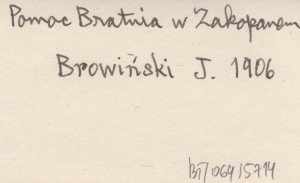 Pomoc Bratnia w Zakopanem
Browiński J. 1906
BT/064/5714